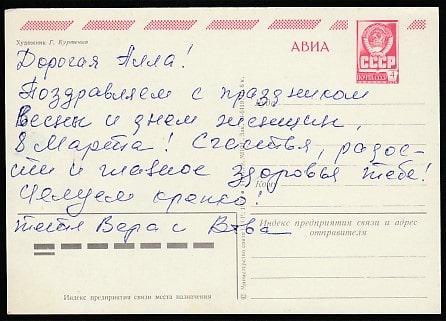 Художник Г. Куртенко
АВИА
СССР
ПОЧТА СССР
Дорогая Алла!
Поздравляем с праздником
весны и днем женщин,
8 Марта! Счастья, радос-
ти и главное здоровья тебе!
Куда
Кому
Целуем крепко!
тетя Вера и
Индекс предприятия связи и адрес
отправителя
Индекс предприятия связи места назначения